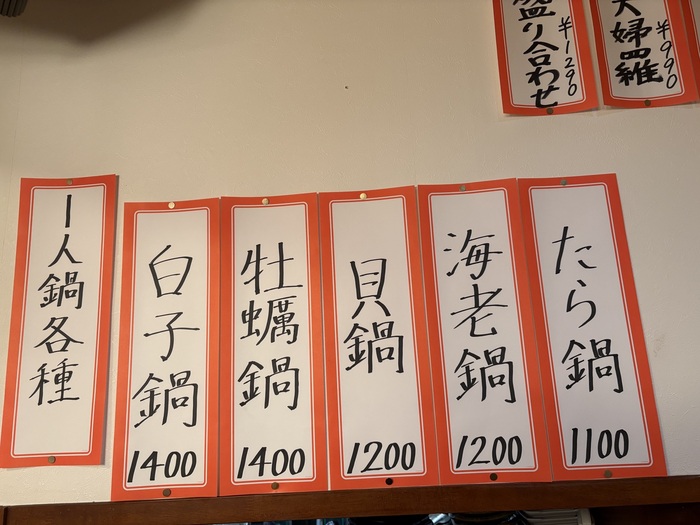 ¥990
盛り合わせ
¥1290
たら鍋
1100
海老鍋
1200
貝鍋
1200
牡蠣鍋
1400
白子鍋
1400
1人鍋各種